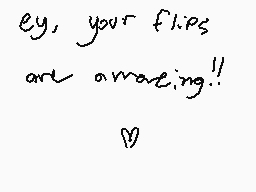 ey, your flips
are amazing!!
♡